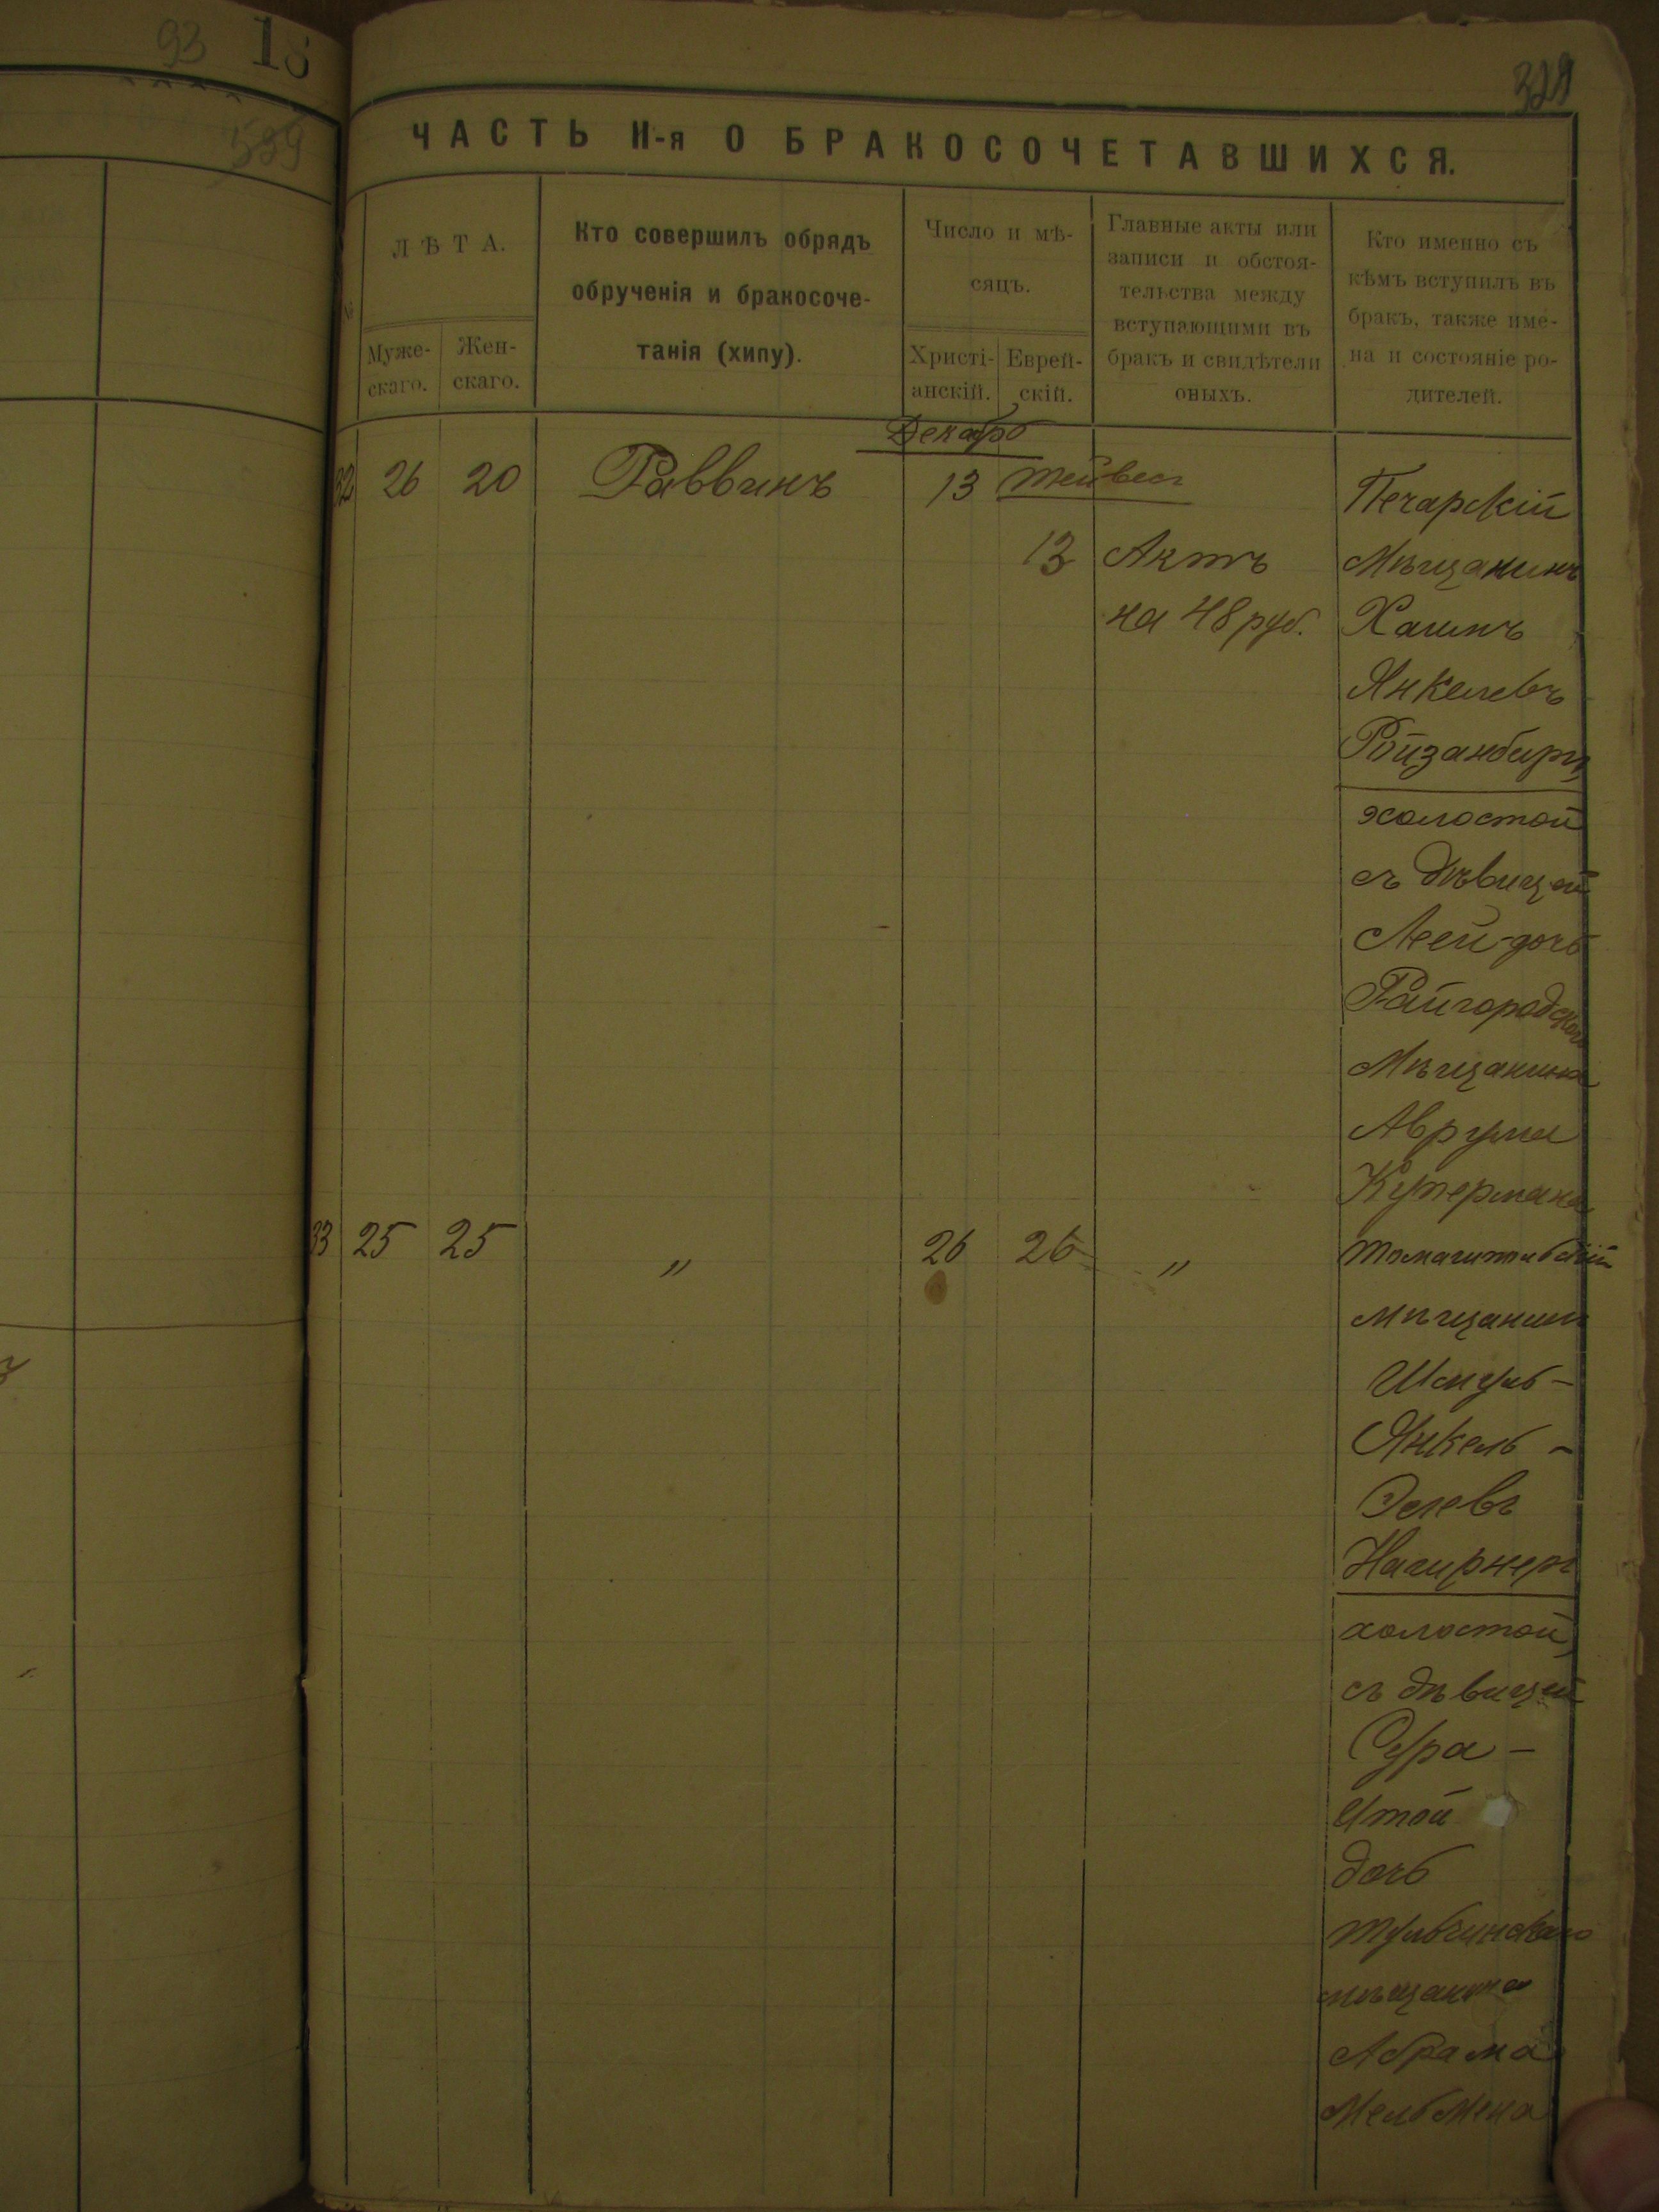 93 18
599
329
ЧАСТЬ II-я О БРАКОСОЧЕТАВШИХСЯ.
№
ЛѢТА.
Муже-
скаго.
Жен-
скаго.
Кто совершилъ обрядъ
обрученія и бракосоче-
танія (хипу).
Число и мѣ-
сяцъ.
Христі-
анскій.
Еврей-
скій.
Главные акты или
записи и обстоя-
тельства между
вступающими въ
бракъ и свидѣтели
оныхъ.
Кто именно съ
кѣмъ вступилъ въ
бракъ, также име-
на и состояніе ро-
дителей.
Декабрь
32 26 20 Раввинъ 13 Тейвесъ
13 Актъ
на 48 руб.
Печарскій
Мѣщанинъ
Хаимъ
Янкелевъ
Ройзанбергъ
холостой
съ дѣвицей
Леей дочь
Райгородскаго
Мѣщанина
Аврума
Купермана
33 25 25 " 26 26 "
мѣщанинъ
Шмуль-
Янкель-
холостой,
съ дѣвицей
Сура-
Итой
дочь
Тульчинскаго
мѣщанина
Абрама
Мельмена